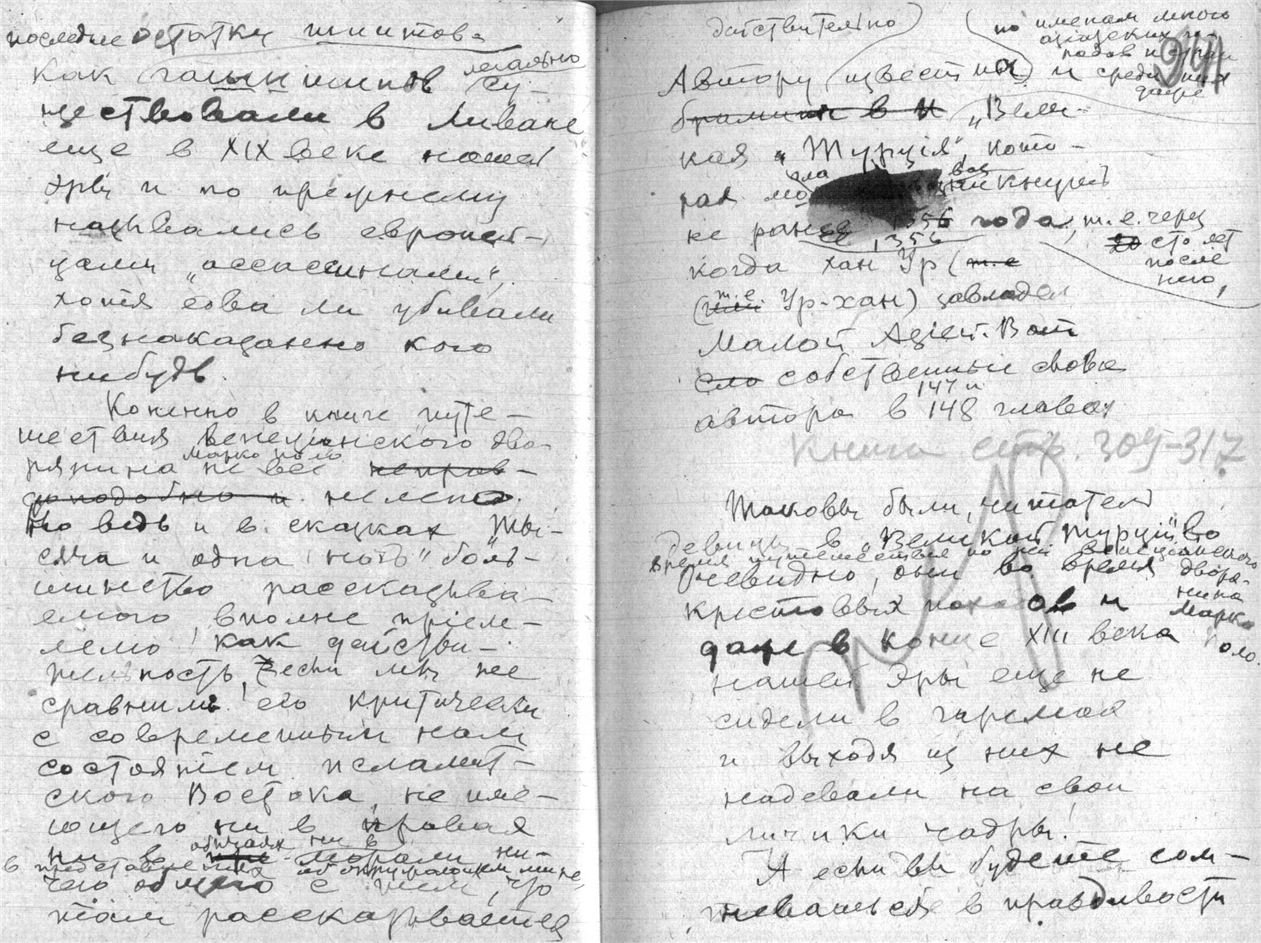 последние остатки шиитов
как гашишинов легально су-
ществовали в Ливане
еще в XIX веке нашей
эры и по прежнему
назывались европей-
цами „ассассинами",
хотя едва ли убивали
безнаказанно кого
нибудь.
Конечно в книге путе-
шествия венецианского дво-
рянина Марко Поло не все неправ-
доподобно и нелепо.
Но ведь и в сказках „Ты-
сяча и одна ночь" боль-
шинство рассказыва-
емого вполне прiем-
лемо как действи-
тельность, если мы не
сравним его критически
с современным нам
состоянiем исламит-
ского Востока, не име-
ющего ни в нравах
ни в обычаях ни в морали ни
в представлениях
чего общего с тем, что
там рассказывается
действительно
по именам много
азiатских
Автору известны и среди них
даже
брамины в и „Вели-
кая Турцiя", кото-
рая
не ранее 1356 года, т.е. через
1356
сто лет
после
него,
когда хан Ур (т.е
(или т.е. Ур-хан) завладел
Малой Азiей. Вот
его собственные слова
автора в 147 и 148 главах
Книга стр. 309-317.
Таковы были, читатель
девицы в „Великой Турцiи" во
время путешествiя по ней венецианского
дворянина
Марко
Поло.
Очевидно, они во время
крестовых походов и
даже в конце XIII века
нашей эры еще не
сидели в гаремах
и выходя из них не
надевали на свои
личики чадры!
А если вы будете сом-
неваться в правдивости